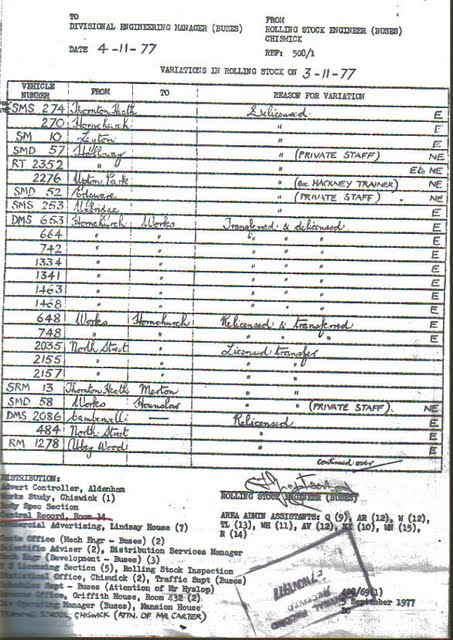 TO
DIVISIONAL ENGINEERING MANAGER (BUSES)
DATE 4-11-77
FROM
ROLLING STOCK ENGINEER (BUSES)
CHISWICK
REF: 500/1
VARIATIONS IN ROLLING STOCK ON 3-11-77
VEHICLE NUMBER FROM TO REASON FOR VARIATION
SMS 274 Thornton Heath Delicensed E
270 Hornchurch " E
SM 10 Leyton " E
SMD 57 " (PRIVATE STAFF) NE
RT 2352 " " E to NE
2276 Upton Park " (ex HACKNEY TRAINER) NE
SMD 52 Edgware " (PRIVATE STAFF) NE
SMS 253 Uxbridge " E
DMS 653 Hornchurch Works Transferred & delicensed E
664 " " " " " E
742 " " " " " E
1334 " " " " " E
1341 " " " " " E
1463 " " " " " E
1468 " " " " " E
648 Works Hornchurch Relicensed & transferred E
748 " " " " " E
2035 North Street " Licensed transfer E
2155 " " " " E
2157 " " " " E
SRM 13 Thornton Heath Merton " " E
SMD 58 Works Hounslow " " (PRIVATE STAFF). NE
DMS 2086 Camberwell Relicensed E
484 North Street " E
RM 1278 Abbey Wood " E
continued over
DISTRIBUTION:
Advert Controller, Aldenham
Works Study, Chiswick (1)
Body Spec Section
Central Record, Room 34
Commercial Advertising, Lindsay House (7)
Costs Office (Mech Engr - Buses) (2)
Scientific Adviser (2), Distribution Services Manager
(Development - Buses) (3)
Licensing Section (5), Rolling Stock Inspection
Office, Chiswick (2), Traffic Supt (Buses)
- Buses (Attention of Mr Hyslop)
Office, Griffith House, Room 432 (2)
Manager (Buses), Mansion House
CHISWICK (ATTN. OF MR CARTER)
ROLLING STOCK ENGINEER (BUSES)
AREA ADMIN ASSISTANTS: Q (9), AR (12), W (12),
TL (13), WH (11), AV (12), HX (10), WN (15),
R (14)
408/69(1)
5 September 1977